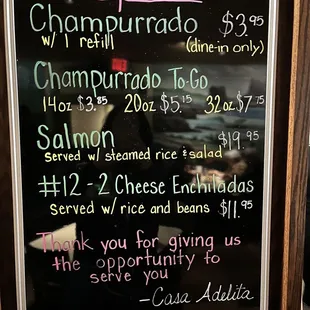 Champurrado $3.95
w/ 1 refill (dine-in only)
Champurrado To-Go
14oz $3.85 20oz $5.15 32oz $7.75
Salmon $19.95
Served w/ steamed rice & salad
#12 - 2 Cheese Enchiladas
Served w/ rice and beans $11.95
Thank you for giving us
the opportunity to
serve you
- Casa Adelita